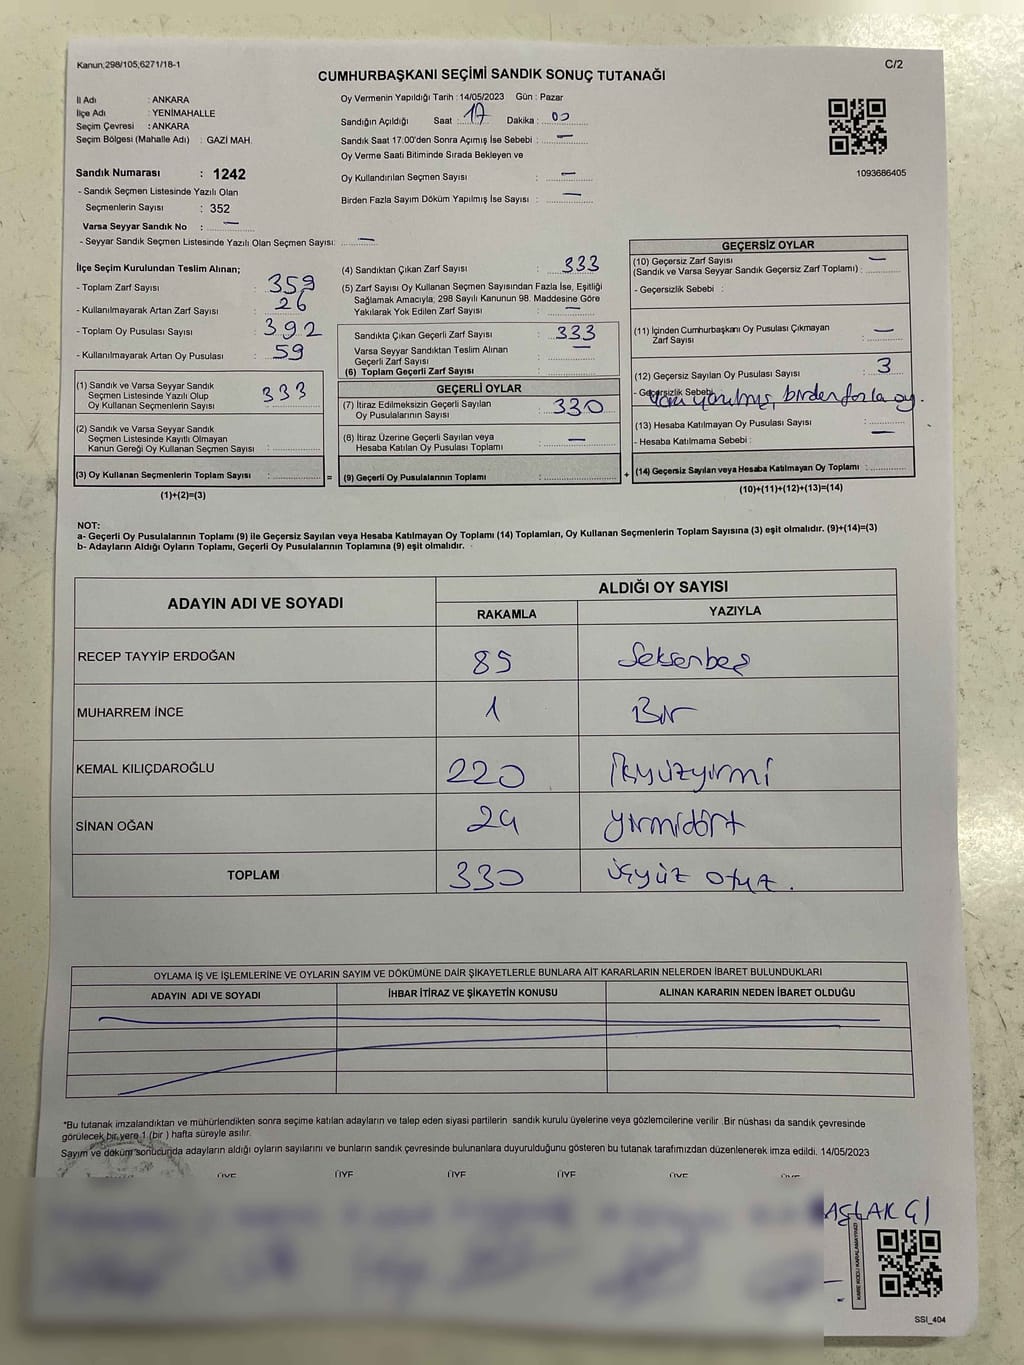 Kanun;298/105;6271/18-1
C/2
CUMHURBAŞKANI SEÇİMİ SANDIK SONUÇ TUTANAĞI
İl Adı : ANKARA
İlçe Adı : YENİMAHALLE
Seçim Çevresi : ANKARA
Seçim Bölgesi (Mahalle Adı) : GAZİ MAH.
Sandık Numarası : 1242
- Sandık Seçmen Listesinde Yazılı Olan
Seçmenlerin Sayısı : 352
Varsa Seyyar Sandık No : —
- Seyyar Sandık Seçmen Listesinde Yazılı Olan Seçmen Sayısı: —
Oy Vermenin Yapıldığı Tarih : 14/05/2023 Gün : Pazar
Sandığın Açıldığı Saat : 17 Dakika : 00
Sandık Saat 17:00'den Sonra Açımış İse Sebebi : —
Oy Verme Saati Bitiminde Sırada Bekleyen ve
Oy Kullandırılan Seçmen Sayısı : —
Birden Fazla Sayım Döküm Yapılmış İse Sayısı : —
1093686405
İlçe Seçim Kurulundan Teslim Alınan;
- Toplam Zarf Sayısı : 359
- Kullanılmayarak Artan Zarf Sayısı : 26
- Toplam Oy Pusulası Sayısı : 392
- Kullanılmayarak Artan Oy Pusulası : 59
(1) Sandık ve Varsa Seyyar Sandık
Seçmen Listesinde Yazılı Olup
Oy Kullanan Seçmenlerin Sayısı : 333
(2) Sandık ve Varsa Seyyar Sandık
Seçmen Listesinde Kayıtlı Olmayan
Kanun Gereği Oy Kullanan Seçmen Sayısı :
(3) Oy Kullanan Seçmenlerin Toplam Sayısı :
(1)+(2)=(3)
=
(4) Sandıktan Çıkan Zarf Sayısı : 333
(5) Zarf Sayısı Oy Kullanan Seçmen Sayısından Fazla İse, Eşitliği
Sağlamak Amacıyla; 298 Sayılı Kanunun 98. Maddesine Göre
Yakılarak Yok Edilen Zarf Sayısı : —
Sandıkta Çıkan Geçerli Zarf Sayısı : 333
Varsa Seyyar Sandıktan Teslim Alınan
Geçerli Zarf Sayısı : —
(6) Toplam Geçerli Zarf Sayısı :
GEÇERLİ OYLAR
(7) İtiraz Edilmeksizin Geçerli Sayılan
Oy Pusulalarının Sayısı : 330
(8) İtiraz Üzerine Geçerli Sayılan veya
Hesaba Katılan Oy Pusulası Toplamı : —
(9) Geçerli Oy Pusulalarının Toplamı :
+
GEÇERSİZ OYLAR
(10) Geçersiz Zarf Sayısı
(Sandık ve Varsa Seyyar Sandık Geçersiz Zarf Toplamı) : —
- Geçersizlik Sebebi :
(11) İçinden Cumhurbaşkanı Oy Pusulası Çıkmayan
Zarf Sayısı : —
(12) Geçersiz Sayılan Oy Pusulası Sayısı : 3
- Geçersizlik Sebebi birden fazla oy.
(13) Hesaba Katılmayan Oy Pusulası Sayısı : —
- Hesaba Katılmama Sebebi :
(14) Geçersiz Sayılan veya Hesaba Katılmayan Oy Toplamı :
(10)+(11)+(12)+(13)=(14)
NOT:
a- Geçerli Oy Pusulalarının Toplamı (9) ile Geçersiz Sayılan veya Hesaba Katılmayan Oy Toplamı (14) Toplamları, Oy Kullanan Seçmenlerin Toplam Sayısına (3) eşit olmalıdır. (9)+(14)=(3)
b- Adayların Aldığı Oyların Toplamı, Geçerli Oy Pusulalarının Toplamına (9) eşit olmalıdır.
ADAYIN ADI VE SOYADI
ALDIĞI OY SAYISI
RAKAMLA YAZIYLA
RECEP TAYYİP ERDOĞAN 85 Seksenbeş
MUHARREM İNCE 1 Bir
KEMAL KILIÇDAROĞLU 220 İkiyüzyirmi
SİNAN OĞAN 24 yirmidört
TOPLAM 330 üçyüz otuz.
OYLAMA İŞ VE İŞLEMLERİNE VE OYLARIN SAYIM VE DÖKÜMÜNE DAİR ŞİKAYETLERLE BUNLARA AİT KARARLARIN NELERDEN İBARET BULUNDUKLARI
ADAYIN ADI VE SOYADI İHBAR İTİRAZ VE ŞİKAYETİN KONUSU ALINAN KARARIN NEDEN İBARET OLDUĞU
*Bu tutanak imzalandıktan ve mühürlendikten sonra seçime katılan adayların ve talep eden siyasi partilerin sandık kurulu üyelerine veya gözlemcilerine verilir .Bir nüshası da sandık çevresinde
görülecek bir yere 1 (bir ) hafta süreyle asılır.
Sayım ve döküm sonucunda adayların aldığı oyların sayılarını ve bunların sandık çevresinde bulunanlara duyurulduğunu gösteren bu tutanak tarafımızdan düzenlenerek imza edildi. 14/05/2023
ÜYE ÜYE ÜYE ÜYE ÜYE
SSI_404